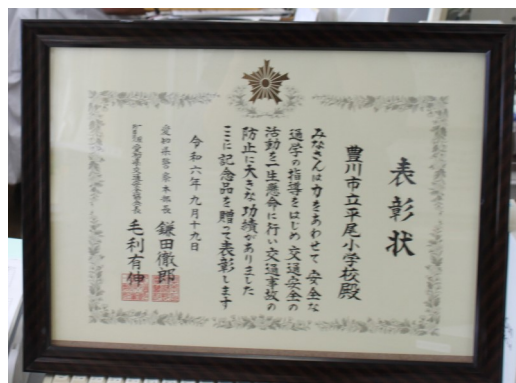 表彰状
豊川市立平尾小学校殿
みなさんは力をあわせて 安全な
通学の指導をはじめ 交通安全の
活動を一生懸命に行い交通事故の
防止に大きな功績がありました
ここに記念品を贈って表彰します
令和六年九月十九日
愛知県警察本部長 鎌田徹郎
愛知県交通安全協会長 毛利有伸